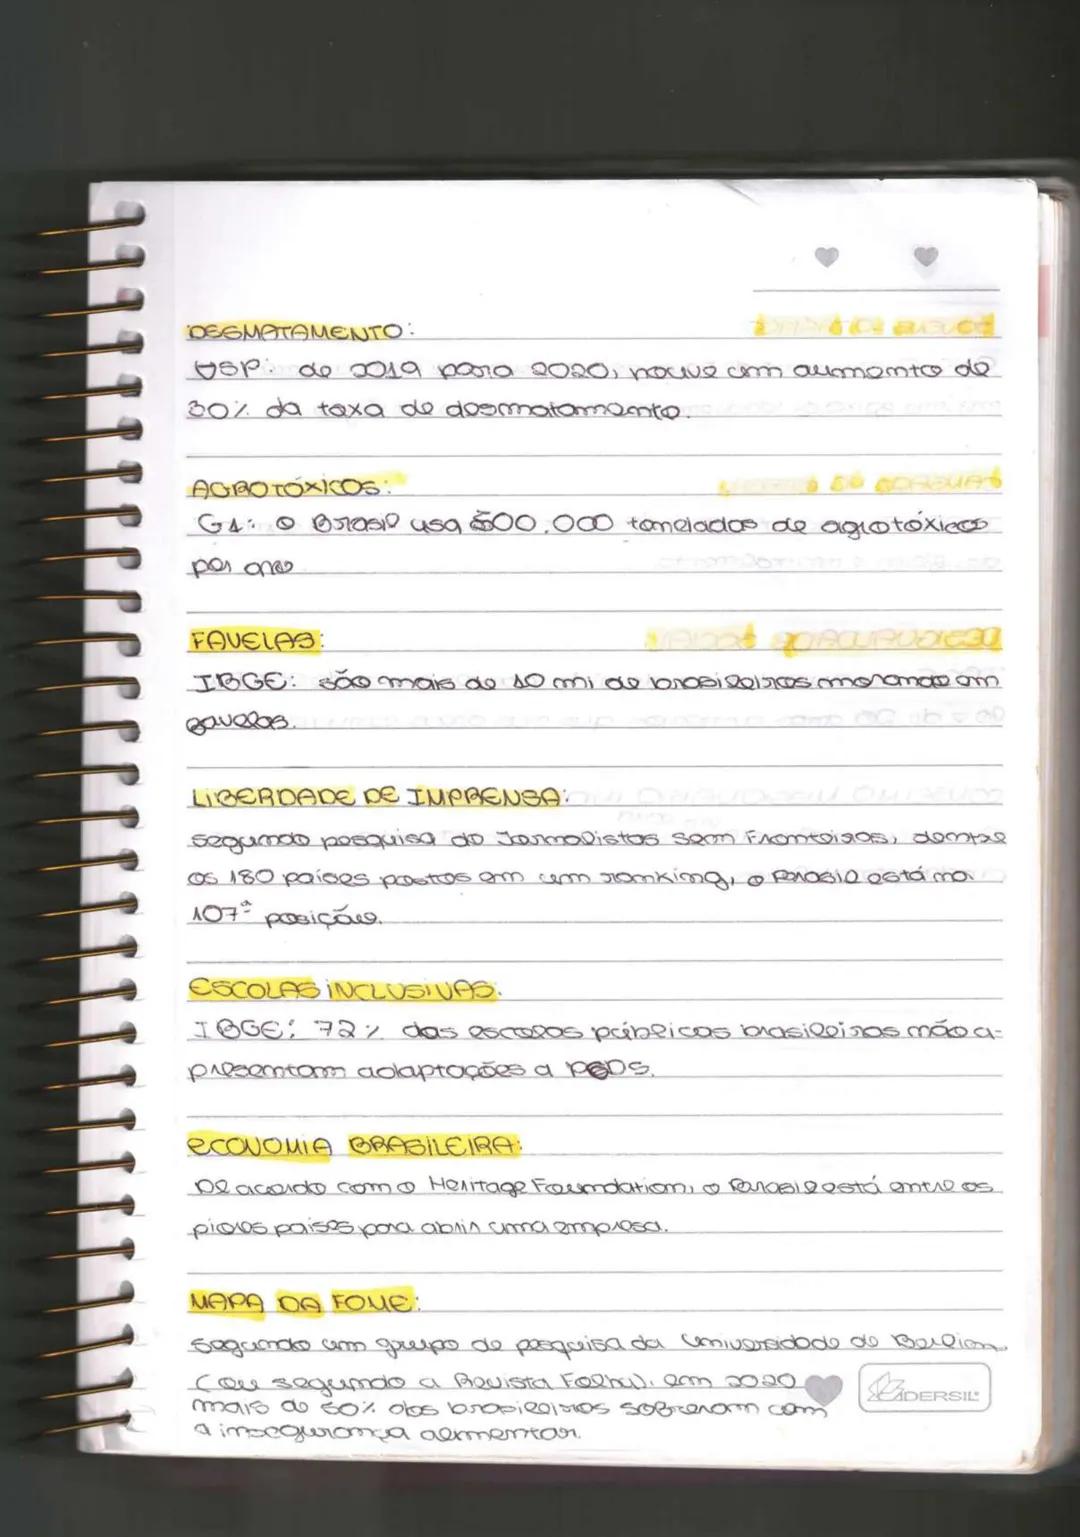 DESMATAMENTO:
USP: de 2019 para 2020, houve um aumento de
30% da taxa de desmatamento.
AGROTÓXICOS:
G1: o Brasil usa 500.000 toneladas de agrotóxicos
por ano
FAVELAS:
IBGE: são mais de 10 mi de brasileiros morando em
favelas.
LIBERDADE DE IMPRENSA:
segundo pesquisa do Jornalistas Sem Fronteiras, dentre
os 180 países postos em um ranking, o Brasil está na
107ª posição.
ESCOLAS INCLUSIVAS:
IBGE: 72% das escolas públicas brasileiras não a-
presentam adaptações a PCDS.
ECONOMIA BRASILEIRA:
De acordo com o Heritage Foundation, o Brasil está entre os
piores países para abrir uma empresa.
MAPA DA FOME:
segundo um grupo de pesquisa da Universidade de Berlim
(ou segundo a Revista Folha), em 2020
mais de 50% dos brasileiros sofreram com
a insegurança alimentar.
IDERSIL